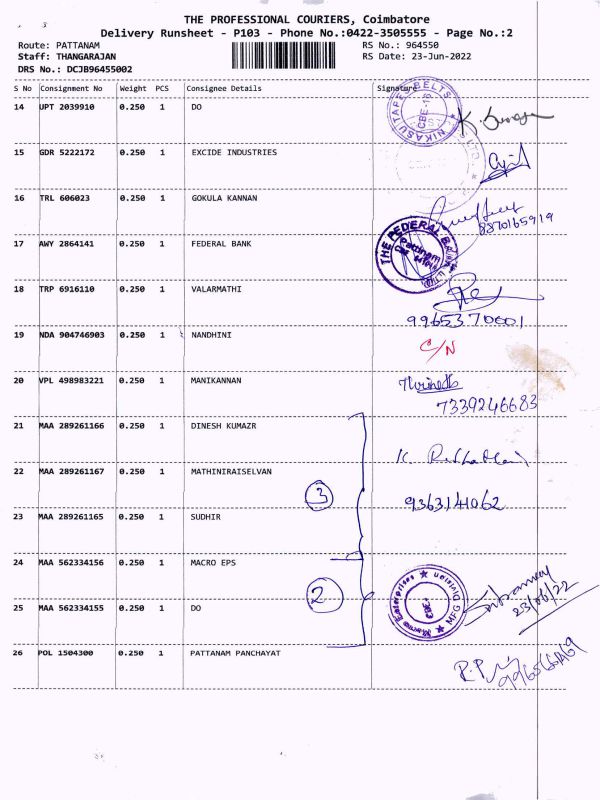 THE PROFESSIONAL COURIERS, Coimbatore
Delivery Runsheet - P103 - Phone No.:0422-3505555 - Page No.:2
Route: PATTANAM RS No.: 964550
Staff: THANGARAJAN RS Date: 23-Jun-2022
DRS No.: DCJB96455002
S No Consignment No Weight PCS Consignee Details Signature
14 UPT 2039910 0.250 1 DO
15 GDR 5222172 0.250 1 EXCIDE INDUSTRIES
16 TRL 606023 0.250 1 GOKULA KANNAN
8870165919
17 AWY 2864141 0.250 1 FEDERAL BANK
THE FEDERAL BANK LTD
18 TRP 6916110 0.250 1 VALARMATHI
9965370001
19 NDA 904746903 0.250 1 NANDHINI
C/N
20 VPL 498983221 0.250 1 MANIKANNAN
7339246683
21 MAA 289261166 0.250 1 DINESH KUMAZR
22 MAA 289261167 0.250 1 MATHINIRAISELVAN
3
9363141062
23 MAA 289261165 0.250 1 SUDHIR
24 MAA 562334156 0.250 1 MACRO EPS
2
23/06/22
25 MAA 562334155 0.250 1 DO
26 POL 1504300 0.250 1 PATTANAM PANCHAYAT
R.P